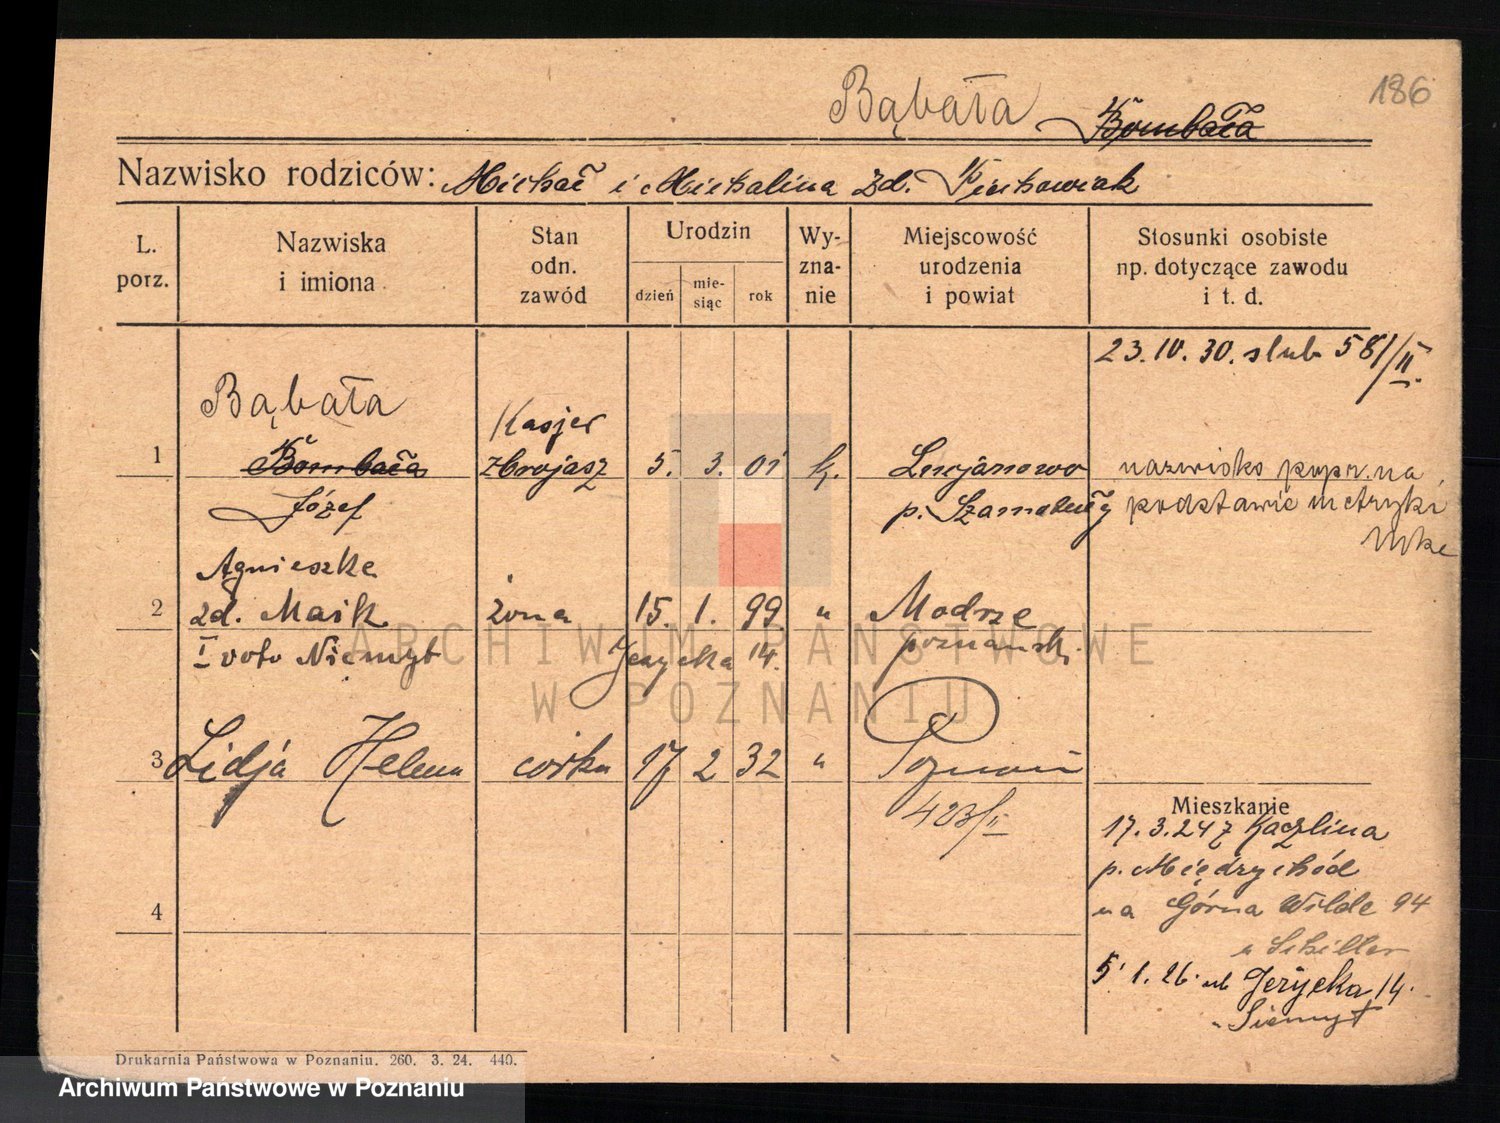 186
Bąbała Bombała
Nazwisko rodziców: Michał i Michalina zd. Piechowiak
L. porz.
Nazwiska i imiona
Stan odn. zawód
Urodzin
dzień
mie-siąc
rok
Wy-zna-nie
Miejscowość urodzenia i powiat
Stosunki osobiste np. dotyczące zawodu i t. d.
23.10.30. slub 581/II.
Bąbała
Kasjer
1 Bombała zbrojasz 5. 3. 01 k. Lucjanowo nazwisko popr. na
Józef p. Szamotuły podstawie metryki
Agnieszka
2 zd. Maik żona 15. 1. 99 " Modrze
I voto Niemyt Jeżycka 14. poznański
3 Lidja Helena córka 17 2 32 " Poznań
423/II
Mieszkanie
17.3.24 z Kaczlina
p. Międzychód
4
na Górna Wilde 94
u Schiller
5.1.26. ul. Jeżycka 14.
" Siemyt
ARCHIWUM PAŃSTWOWE
W POZNANIU
Drukarnia Państwowa w Poznaniu. 260. 3. 24. 440.
Archiwum Państwowe w Poznaniu